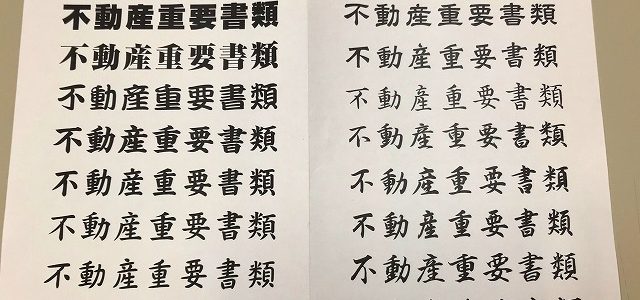 不動産重要書類
不動産重要書類
不動産重要書類
不動産重要書類
不動産重要書類
不動産重要書類
不動産重要書類
不動産重要書類
不動産重要書類
不動産重要書類
不動産重要書類
不動産重要書類
不動産重要書類
不動産重要書類